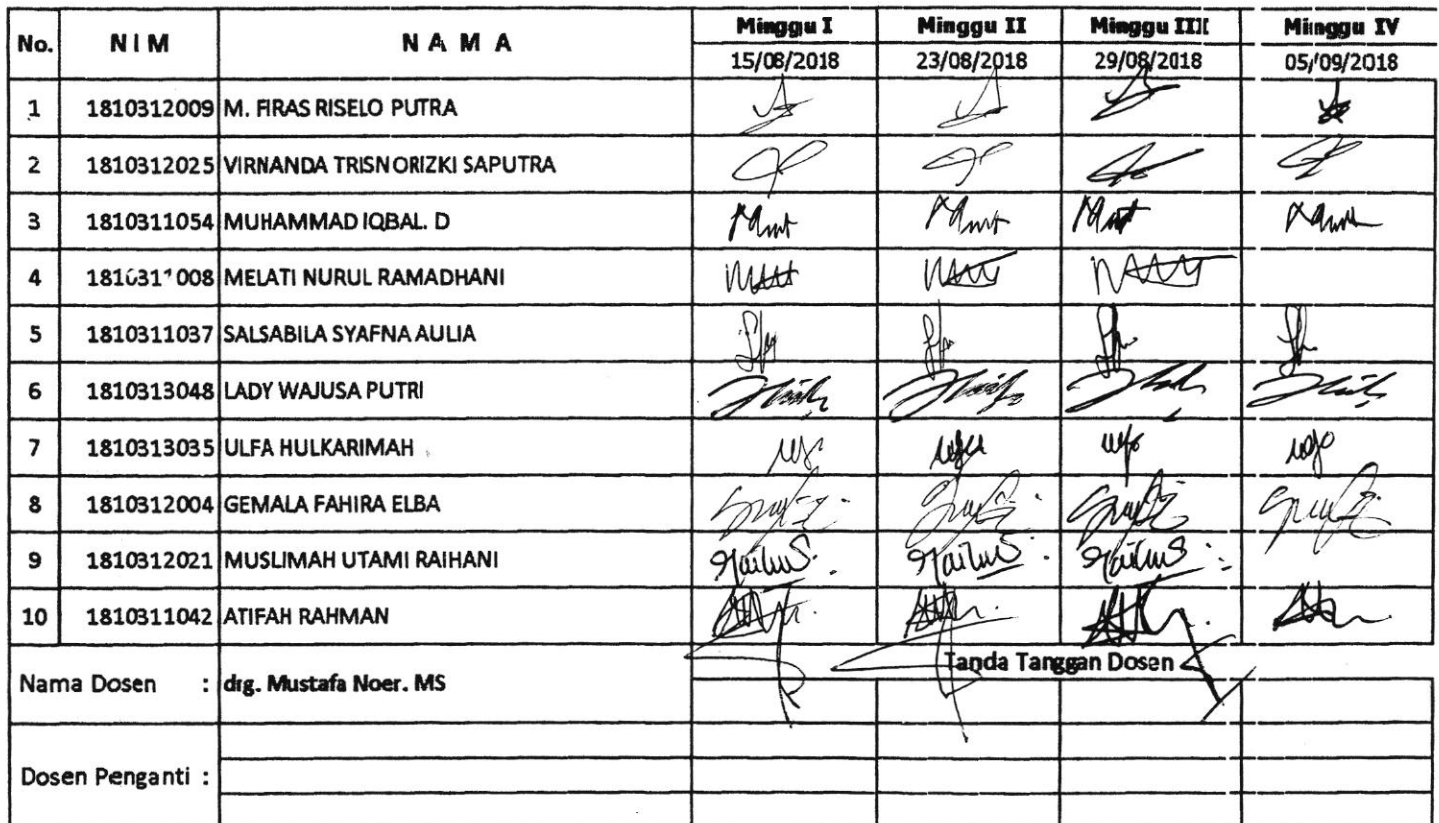 No. NIM NAMA Minggu I Minggu II Minggu III Minggu IV
15/08/2018 23/08/2018 29/08/2018 05/09/2018
1 1810312009 M. FIRAS RISELO PUTRA
2 1810312025 VIRNANDA TRISNORIZKI SAPUTRA
3 1810311054 MUHAMMAD IQBAL. D
4 1810311008 MELATI NURUL RAMADHANI
5 1810311037 SALSABILA SYAFNA AULIA
6 1810313048 LADY WAJUSA PUTRI
7 1810313035 ULFA HULKARIMAH
8 1810312004 GEMALA FAHIRA ELBA
9 1810312021 MUSLIMAH UTAMI RAIHANI
10 1810311042 ATIFAH RAHMAN
Tanda Tanggan Dosen
Nama Dosen : drg. Mustafa Noer. MS
Dosen Penganti :